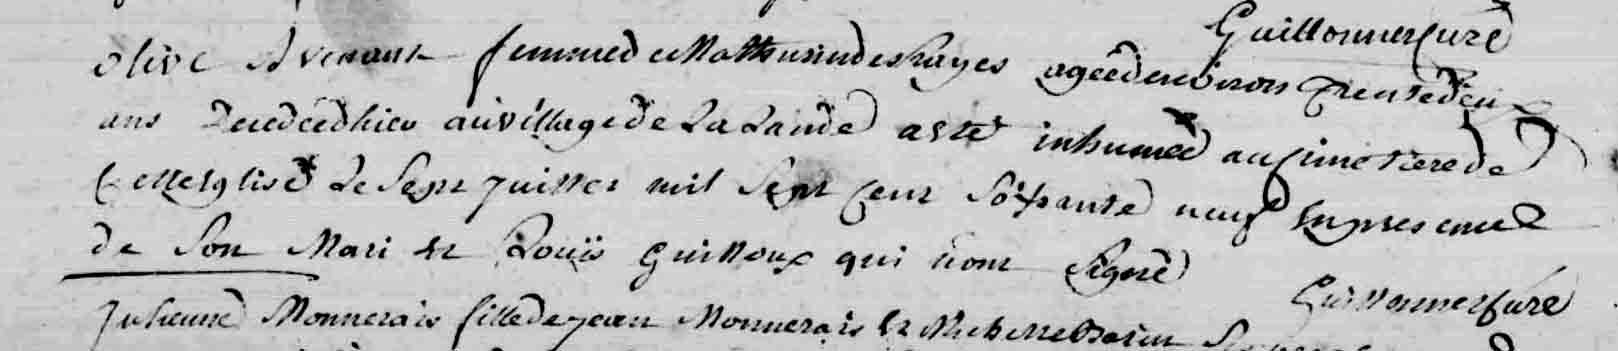 Guillonner curé
olive Avenant femme de Mathurin deshayes agee denviron trente deux
ans decedee d'hier au village de La Lande a esté inhumee au cimetiere de
Cette Eglise Le Sept juillet mil Sept Cent Soixante neuf En presence
de Son Mari et Loüis Guilloux qui n'ont Signé
Guillonner curé
Julienne Monnerais fille de jean Monnerais et Michelle